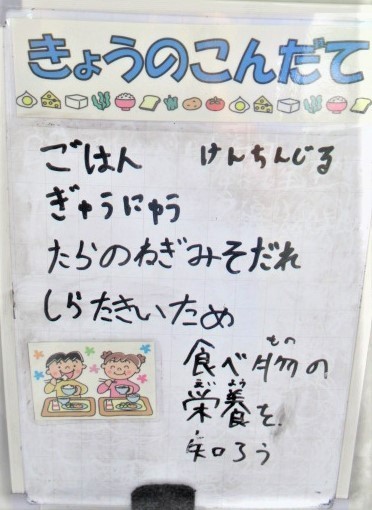 きょうのこんだて
ごはん けんちんじる
ぎゅうにゅう
たらのねぎみそだれ
しらたきいため
食べ物の
もの
栄養を
えいよう
知ろう